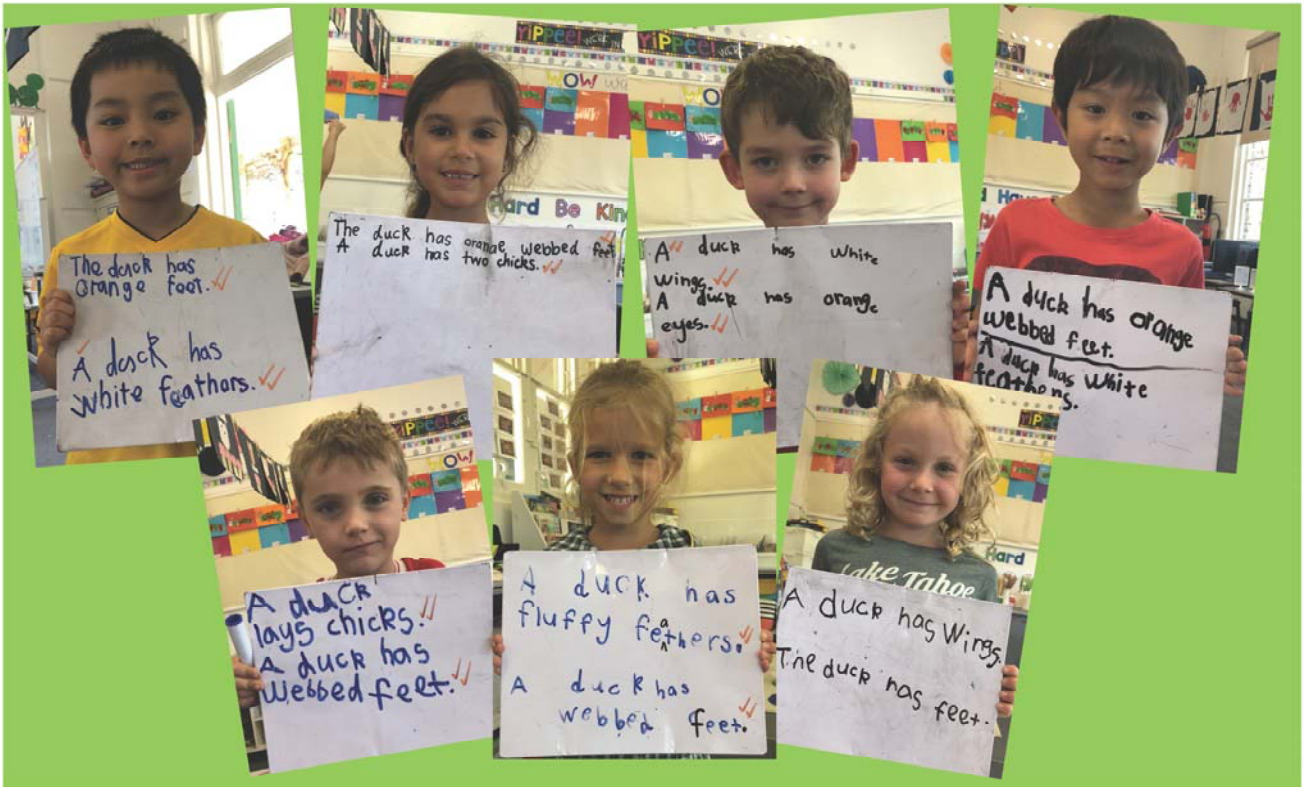 YiPPEE!
WOW!
Hard Be Kind
The duck has
orange feet.
A duck has
white feathers.
The duck has orange webbed feet
A duck has two chicks.
YiPPEE!
WO
A duck has white
wings.
A duck has orange
eyes.
A duck has orange
webbed feet.
A duck has white
feathers.
YIPPEE!
WOW
A duck
lays chicks.
A duck has
webbed feet.
A duck has
fluffy feathers.
A duck has
webbed feet.
Hard
Lake Tahoe
A duck has Wings.
The duck has feet.